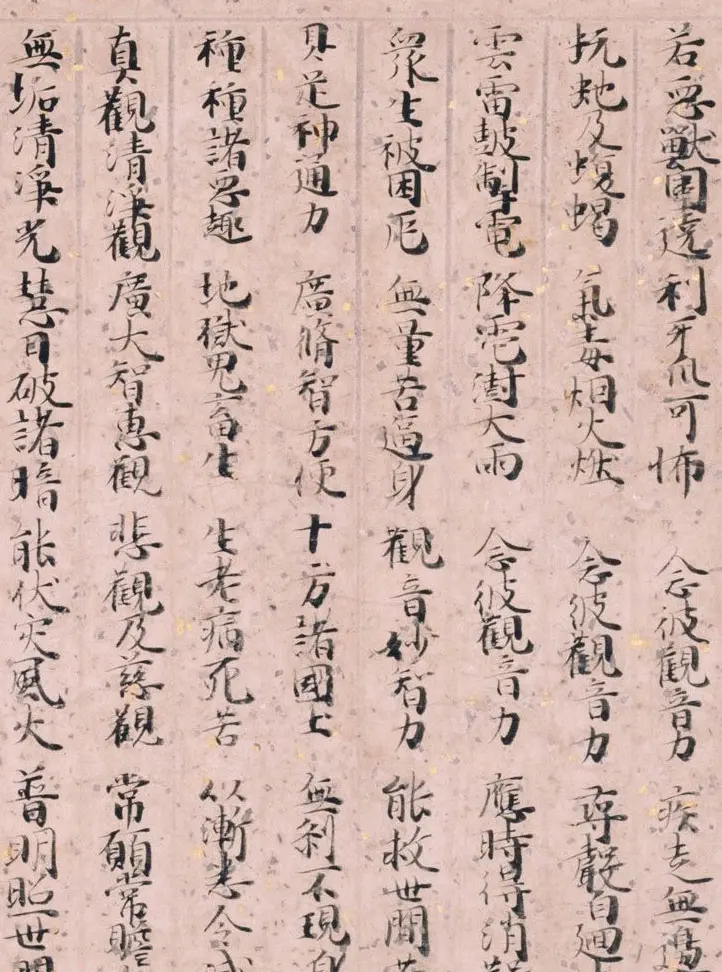 若惡獸圍遶 利牙爪可怖 念彼觀音力 疾走無邊
蚖虵及蝮蝎 氣毒烟火燃 念彼觀音力 尋聲自迴
雲雷鼓掣電 降雹澍大雨 念彼觀音力 應時得消
衆生被困厄 無量苦逼身 觀音妙智力 能救世間苦
具足神通力 廣脩智方便 十方諸國土 無刹不現身
種種諸惡趣 地獄鬼畜生 生老病死苦 以漸悉令
真觀清淨觀 廣大智惠觀 悲觀及慈觀 常願常瞻
無垢清淨光 慧日破諸暗 能伏灾風火 普明照世間